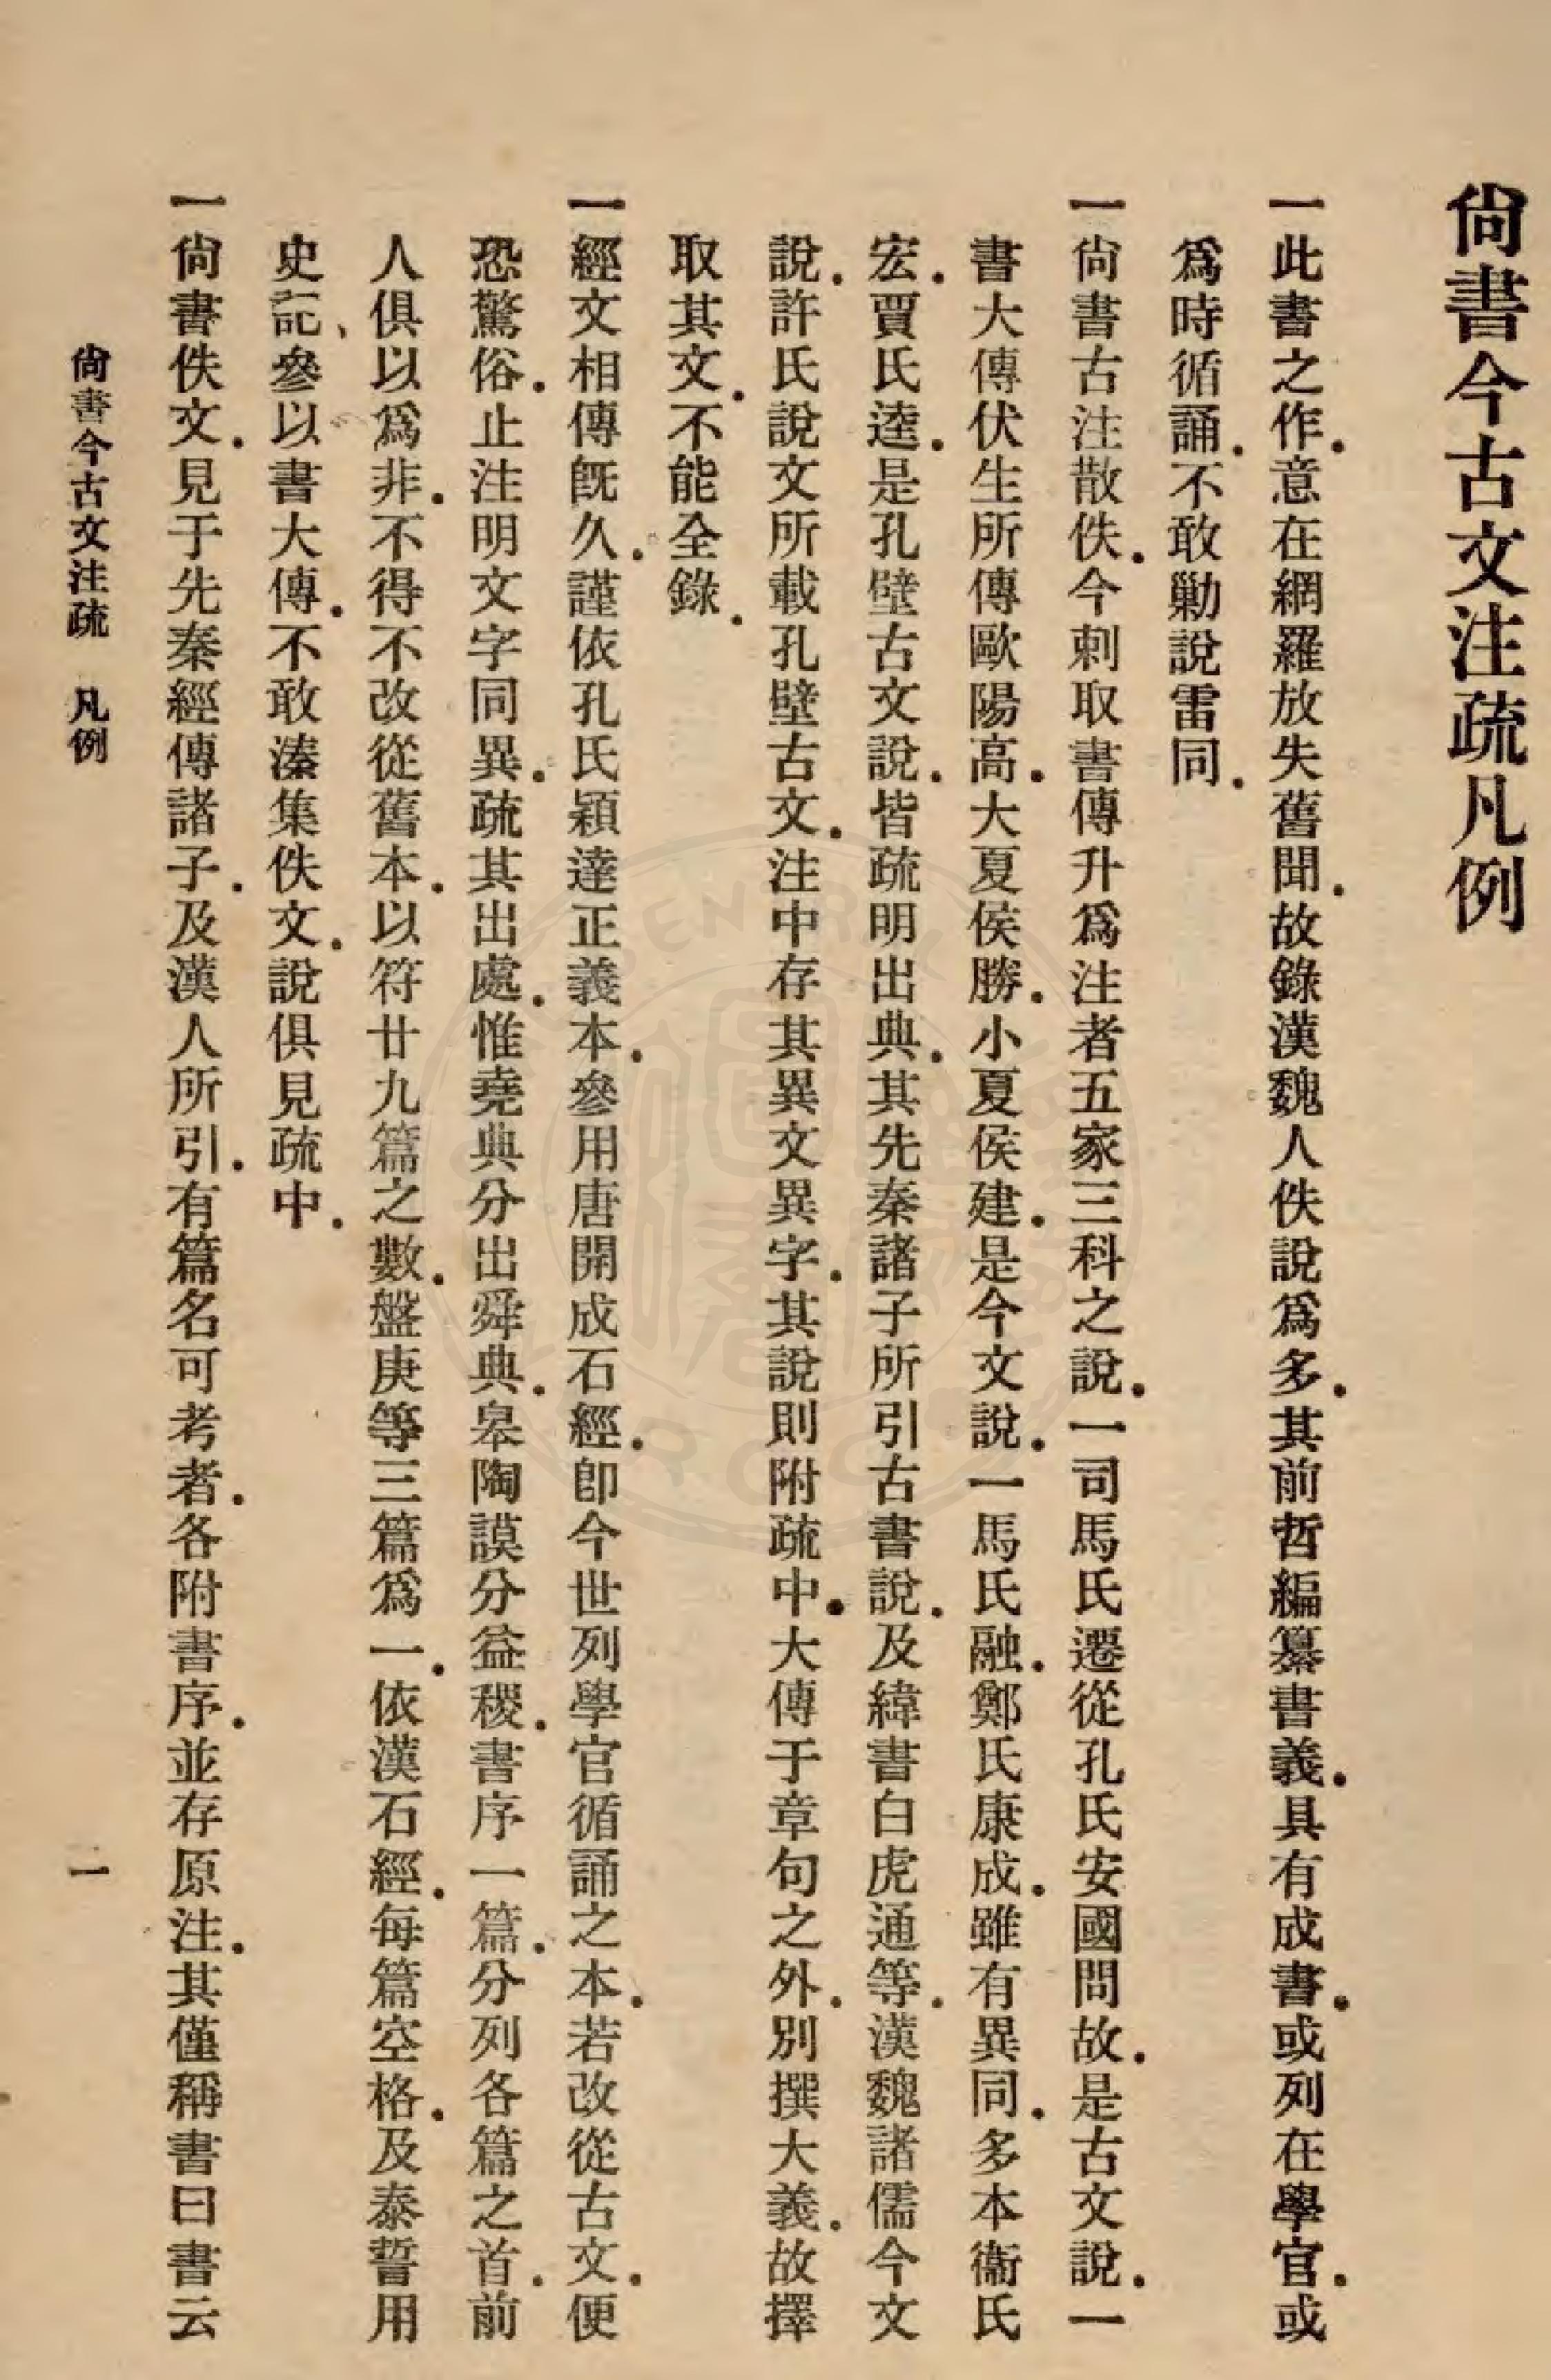 尙書今古文注疏凡例
一此書之作．意在網羅放失舊聞．故錄漢魏人佚說爲多．其前哲編纂書義．具有成書．或列在學官．或
爲時循誦．不敢勦說雷同．
一尙書古注散佚．今刺取書傳升爲注者五家三科之說．一司馬氏遷從孔氏安國問故．是古文說．一
書大傳伏生所傳歐陽高．大夏侯勝．小夏侯建．是今文說．一馬氏融．鄭氏康成．雖有異同．多本衞氏
宏．賈氏逵．是孔壁古文說．皆疏明出典．其先秦諸子所引古書說．及緯書白虎通等．漢魏諸儒今文
說．許氏說文所載孔壁古文．注中存其異文異字．其說則附疏中．大傳于章句之外．別撰大義．故擇
取其文．不能全錄．
一經文相傳旣久．謹依孔氏穎達正義本．參用唐開成石經．卽今世列學官循誦之本．若改從古文．便
恐驚俗．止注明文字同異．疏其出處．惟堯典分出舜典．皋陶謨分益稷．書序一篇．分列各篇之首．前
人俱以爲非．不得不改從舊本．以符廿九篇之數．盤庚等三篇爲一．依漢石經．每篇空格．及泰誓用
史記、參以書大傳．不敢湊集佚文．說俱見疏中．
一尙書佚文．見于先秦經傳諸子．及漢人所引．有篇名可考者．各附書序．並存原注．其僅稱書曰書云
尙書今古文注疏　凡例
一